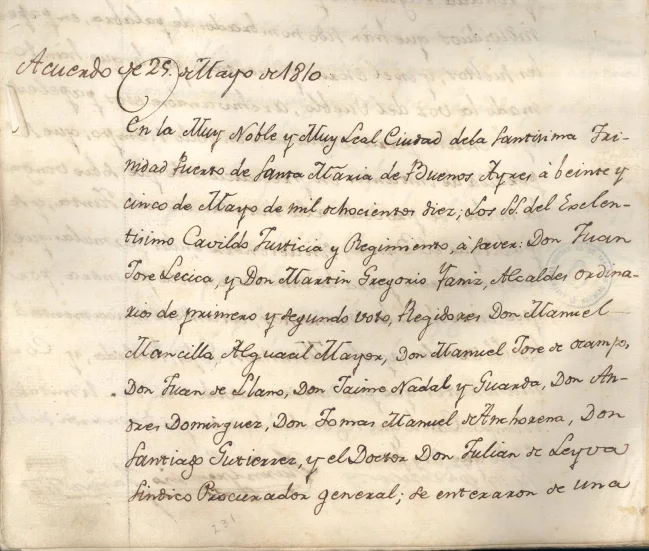 Acuerdo de 25. de Mayo de 1810
En la Muy Noble y Muy Leal Ciudad dela Santisima Tri-
nidad Puerto de Santa Maria de Buenos Ayres à beinte y
cinco de Mayo de mil ochocientos diez; Los SS. del Exelen-
tisimo Cavildo Justicia y Regimiento, à saver: Don Juan
Jose Lecica, y Don Martin Gregorio Yaniz, Alcaldes ordina-
rios de primero y segundo voto, Regidores Don Manuel
Mancilla, Alguacil Mayor, Don Manuel Jose de Ocampo,
Don Juan de Llano, Don Jaime Nadal y Guarda, Don An-
dres Dominguez, Don Tomas Manuel de Anchorena, Don
Santiago Gutierrez, y el Doctor Don Julian de Leyva
Sindico Procurador general; se enteraron de una
231